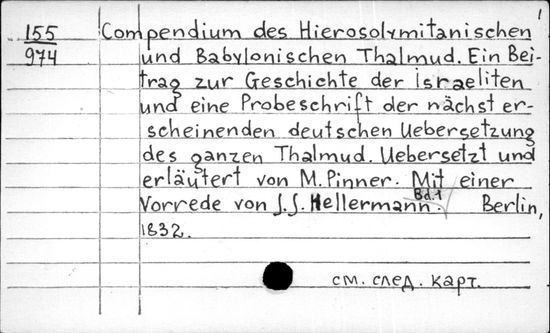 1
155 Compendium des Hierosolymitanischen
974 und Babylonischen Thalmud. Ein Bei-
trag zur Geschichte der israeliten
und eine Probeschrift der nächst er-
scheinenden deutschen Uebersetzung
des ganzen Thalmud. Uebersetzt und
erläutert von M. Pinner. Mit einer
Vorrede von J. J. Hellermann. Bd. 1 Berlin,
1832.
см. след. карт.